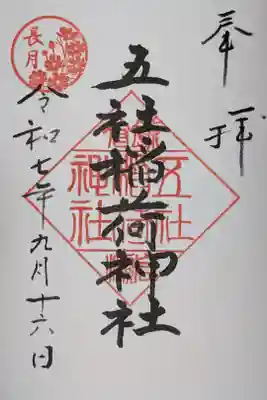 奉拝
五社稲荷神社
令和七年九月十六日
長月
五社
神社